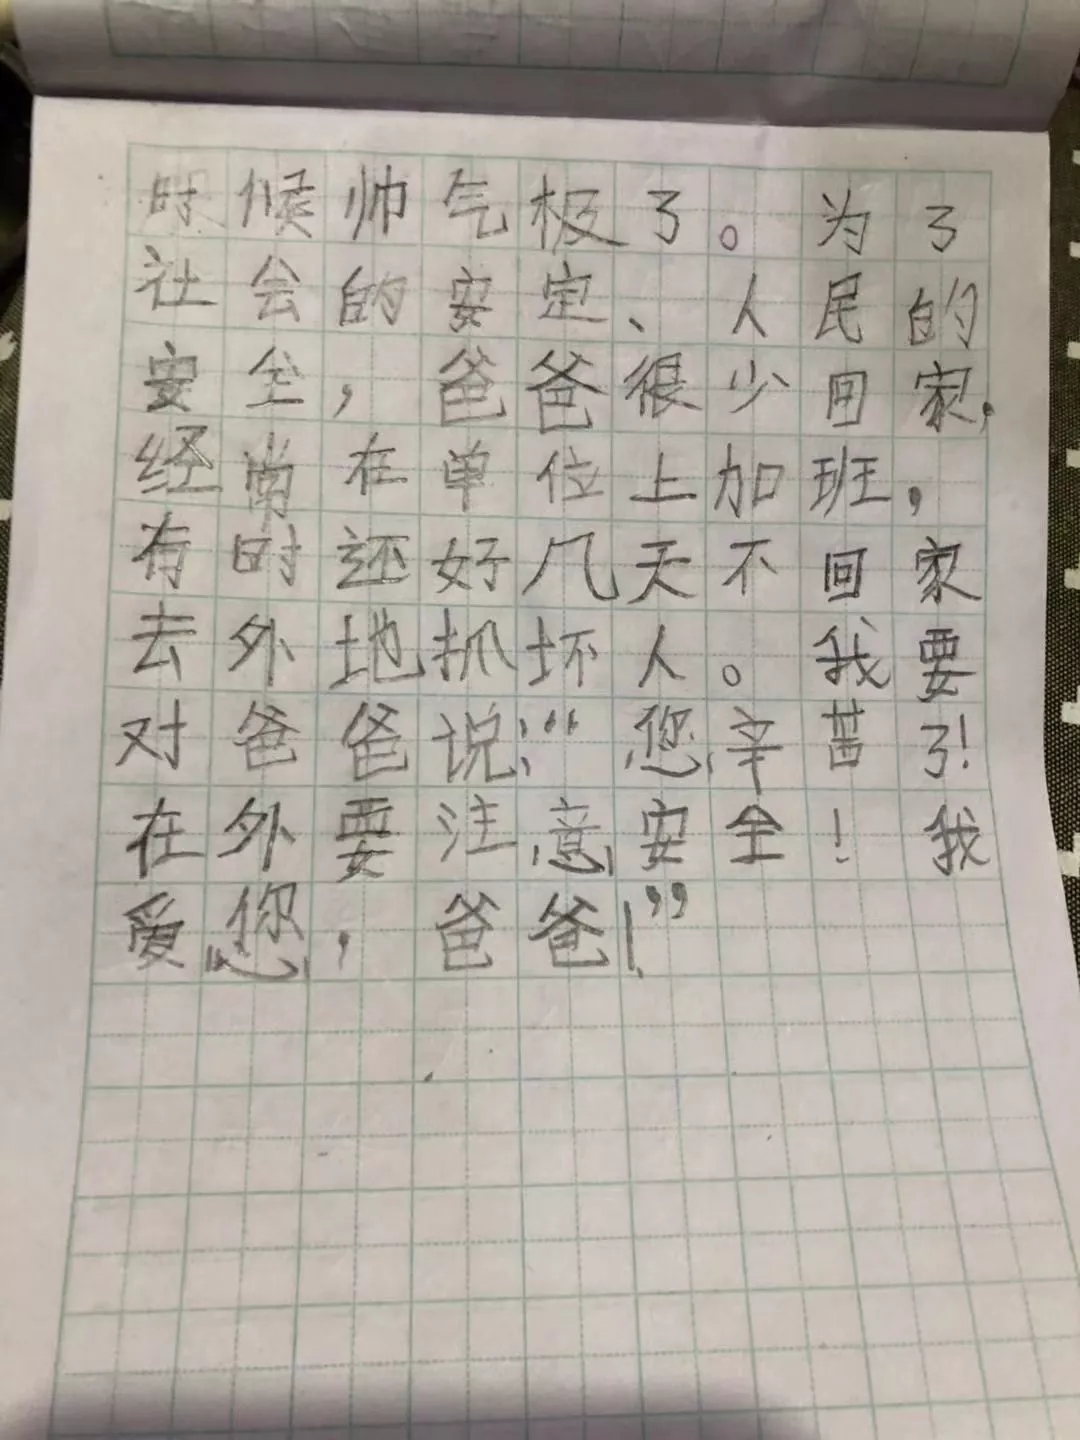 时候帅气极了。为了
社会的安定、人民的
安全，爸爸很少回家，
经常在单位上加班，
有时还好几天不回家
去外地抓坏人。我要
对爸爸说：“您辛苦了！
在外要注意安全！我
爱您，爸爸！”